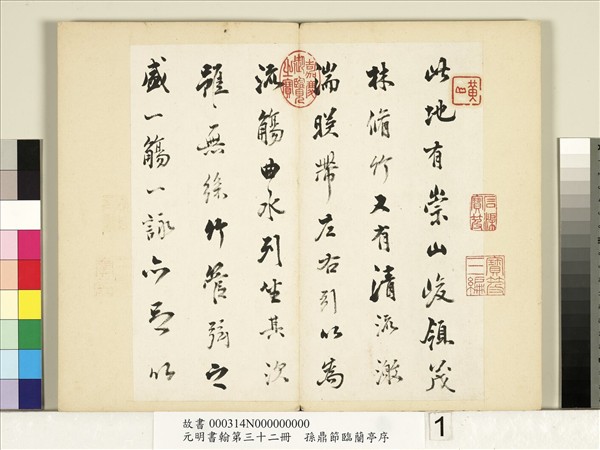 此地有崇山峻領茂
林脩竹又有清流激
湍暎帶左右引以為
流觴曲水列坐其次
雖無絲竹管弦之
盛一觴一詠亦足以
嘉慶御覽之寶
石渠寶笈
寶笈三編
故書 000314N000000000
元明書翰第三十二冊 孫鼎節臨蘭亭序
1